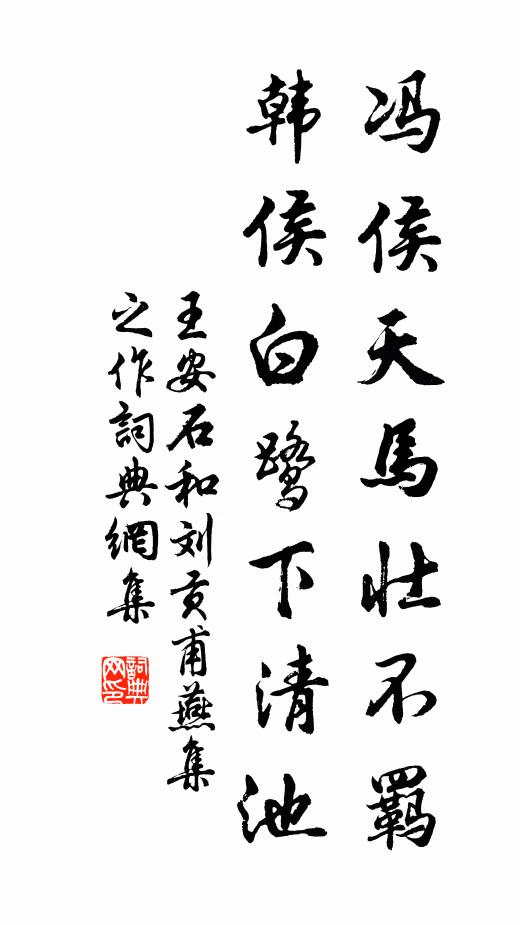 冯侯天馬壮不羁
韩侯白鹭下清池
王安石和刘贡甫燕集
之作詞典網集
詞典网印